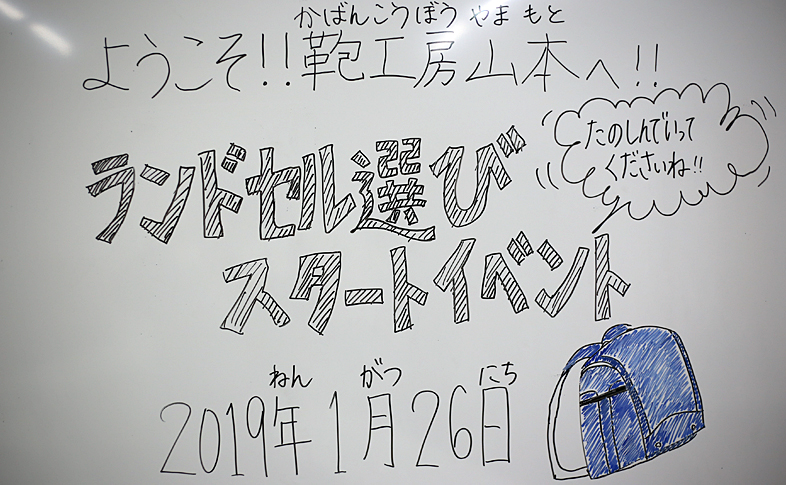 かばんこうぼう やま もと
ようこそ!!鞄工房山本へ!!
たのしんでいって
くださいね!!
ランドセル選び
スタートイベント
ねん がつ にち
2019年1月26日